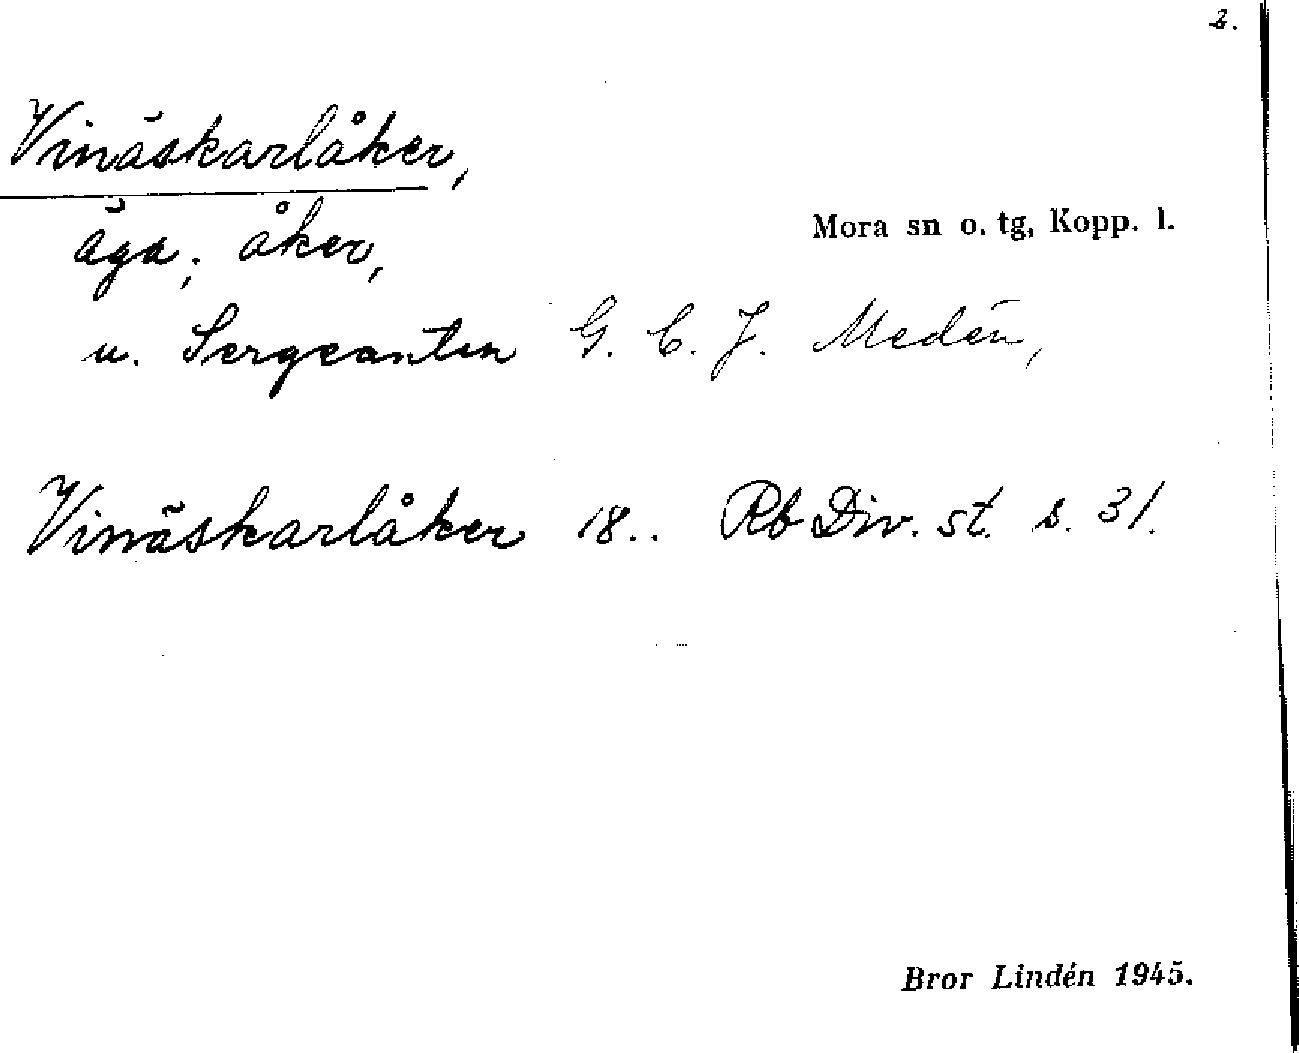 s.
Vinäskarlåker,
äga; åker,
Mora sn o. tg, Kopp. l.
u. Sergeanten G. C. J. Medén,
Vinäskarlåker 18.. Rb Div. st. s. 31.
Bror Lindén 1945.